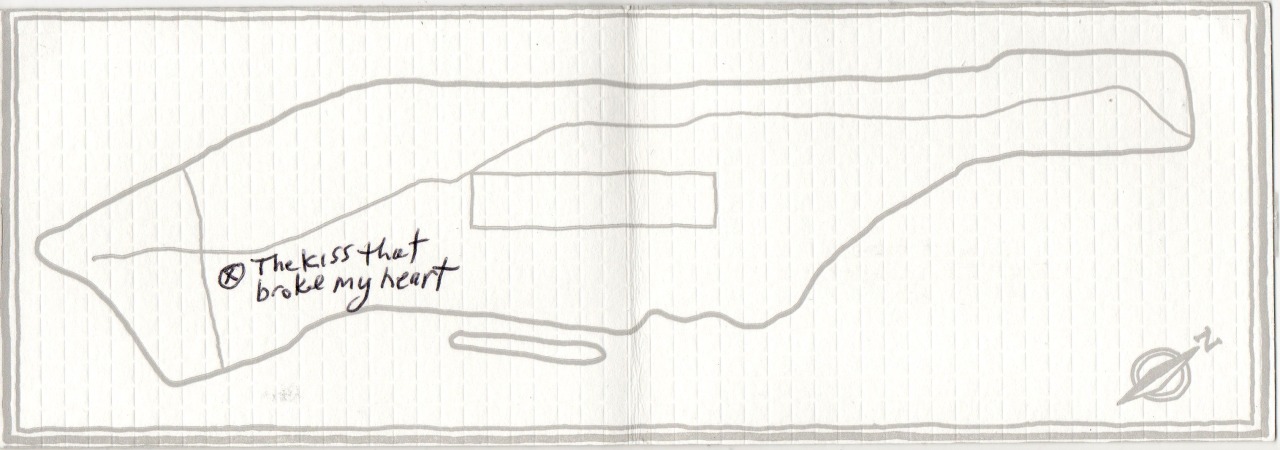 The kiss that
broke my heart
N